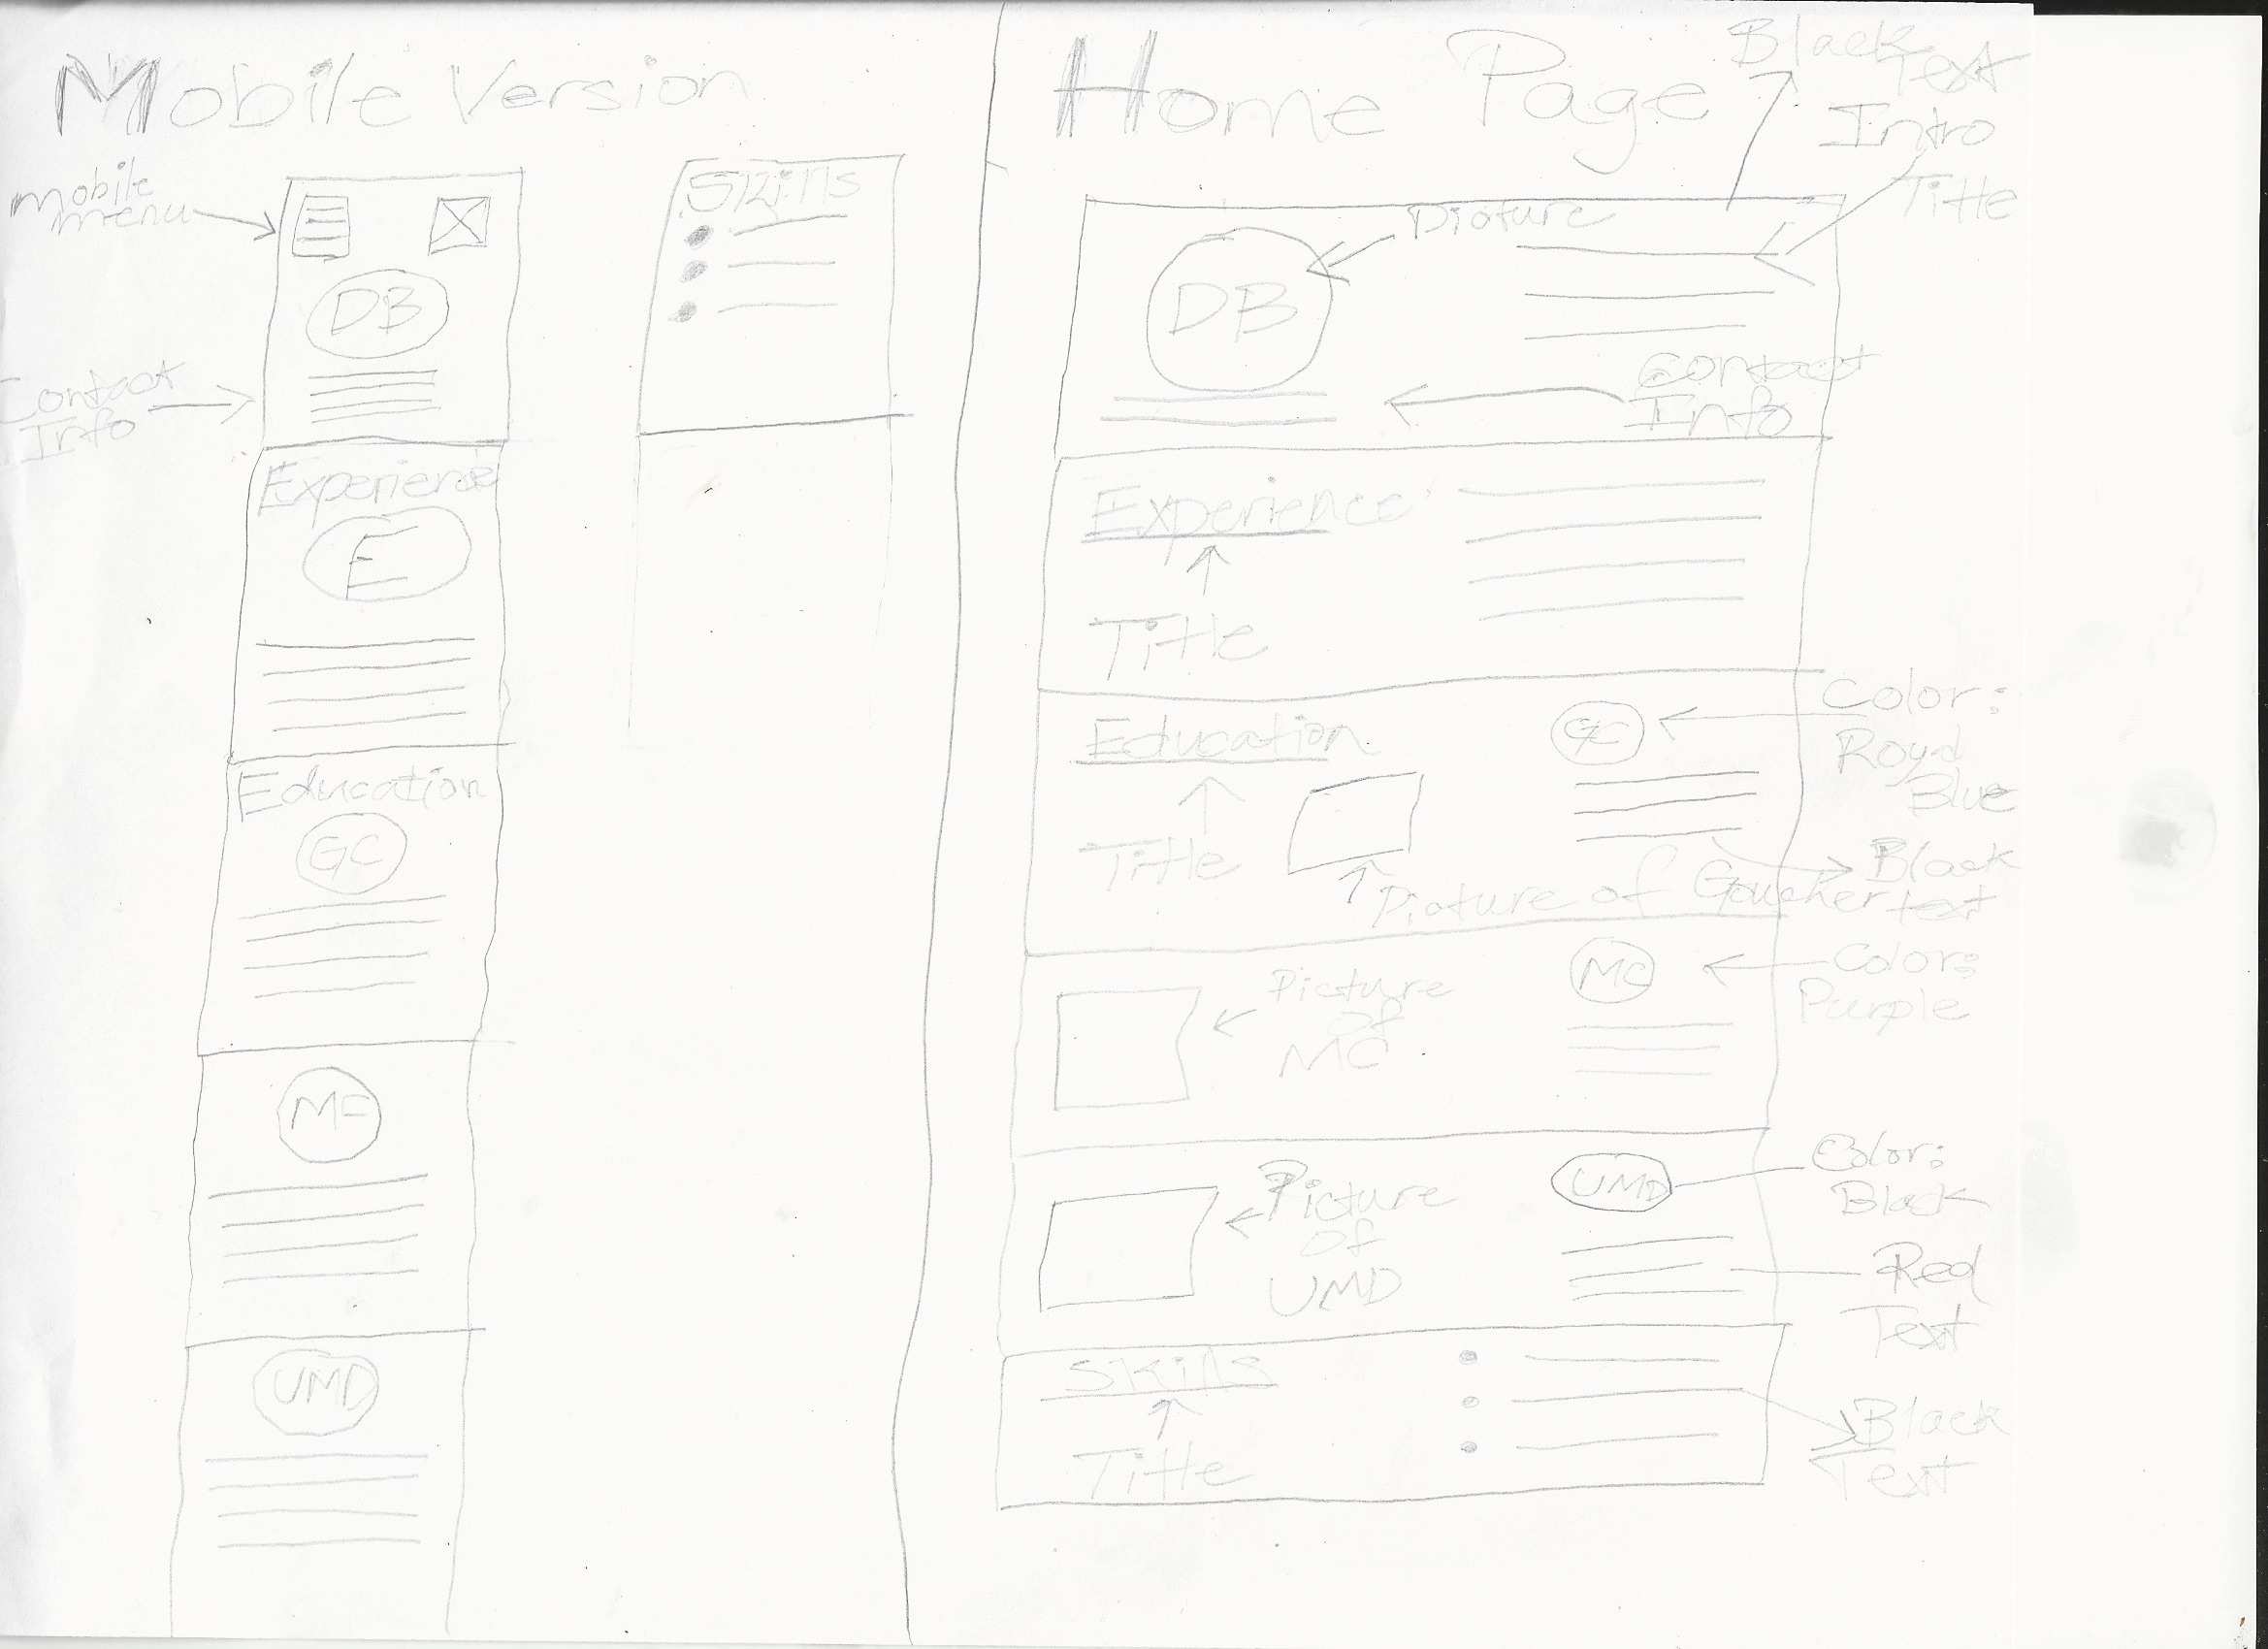 Mobile Version
mobile
menu
DB
Contact
Info
Experience
E
Education
GC
MC
UMD
Skills
Home Page
Black
Text
Intro
Title
Picture
DB
Contact
Info
Experience
Title
Education
Title
GC
Color:
Royal
Blue
Black
text
Picture of Goucher
Picture
of
MC
MC
Color:
Purple
Picture
of
UMD
UMD
Color:
Black
Red
Text
Skills
Title
Black
Text